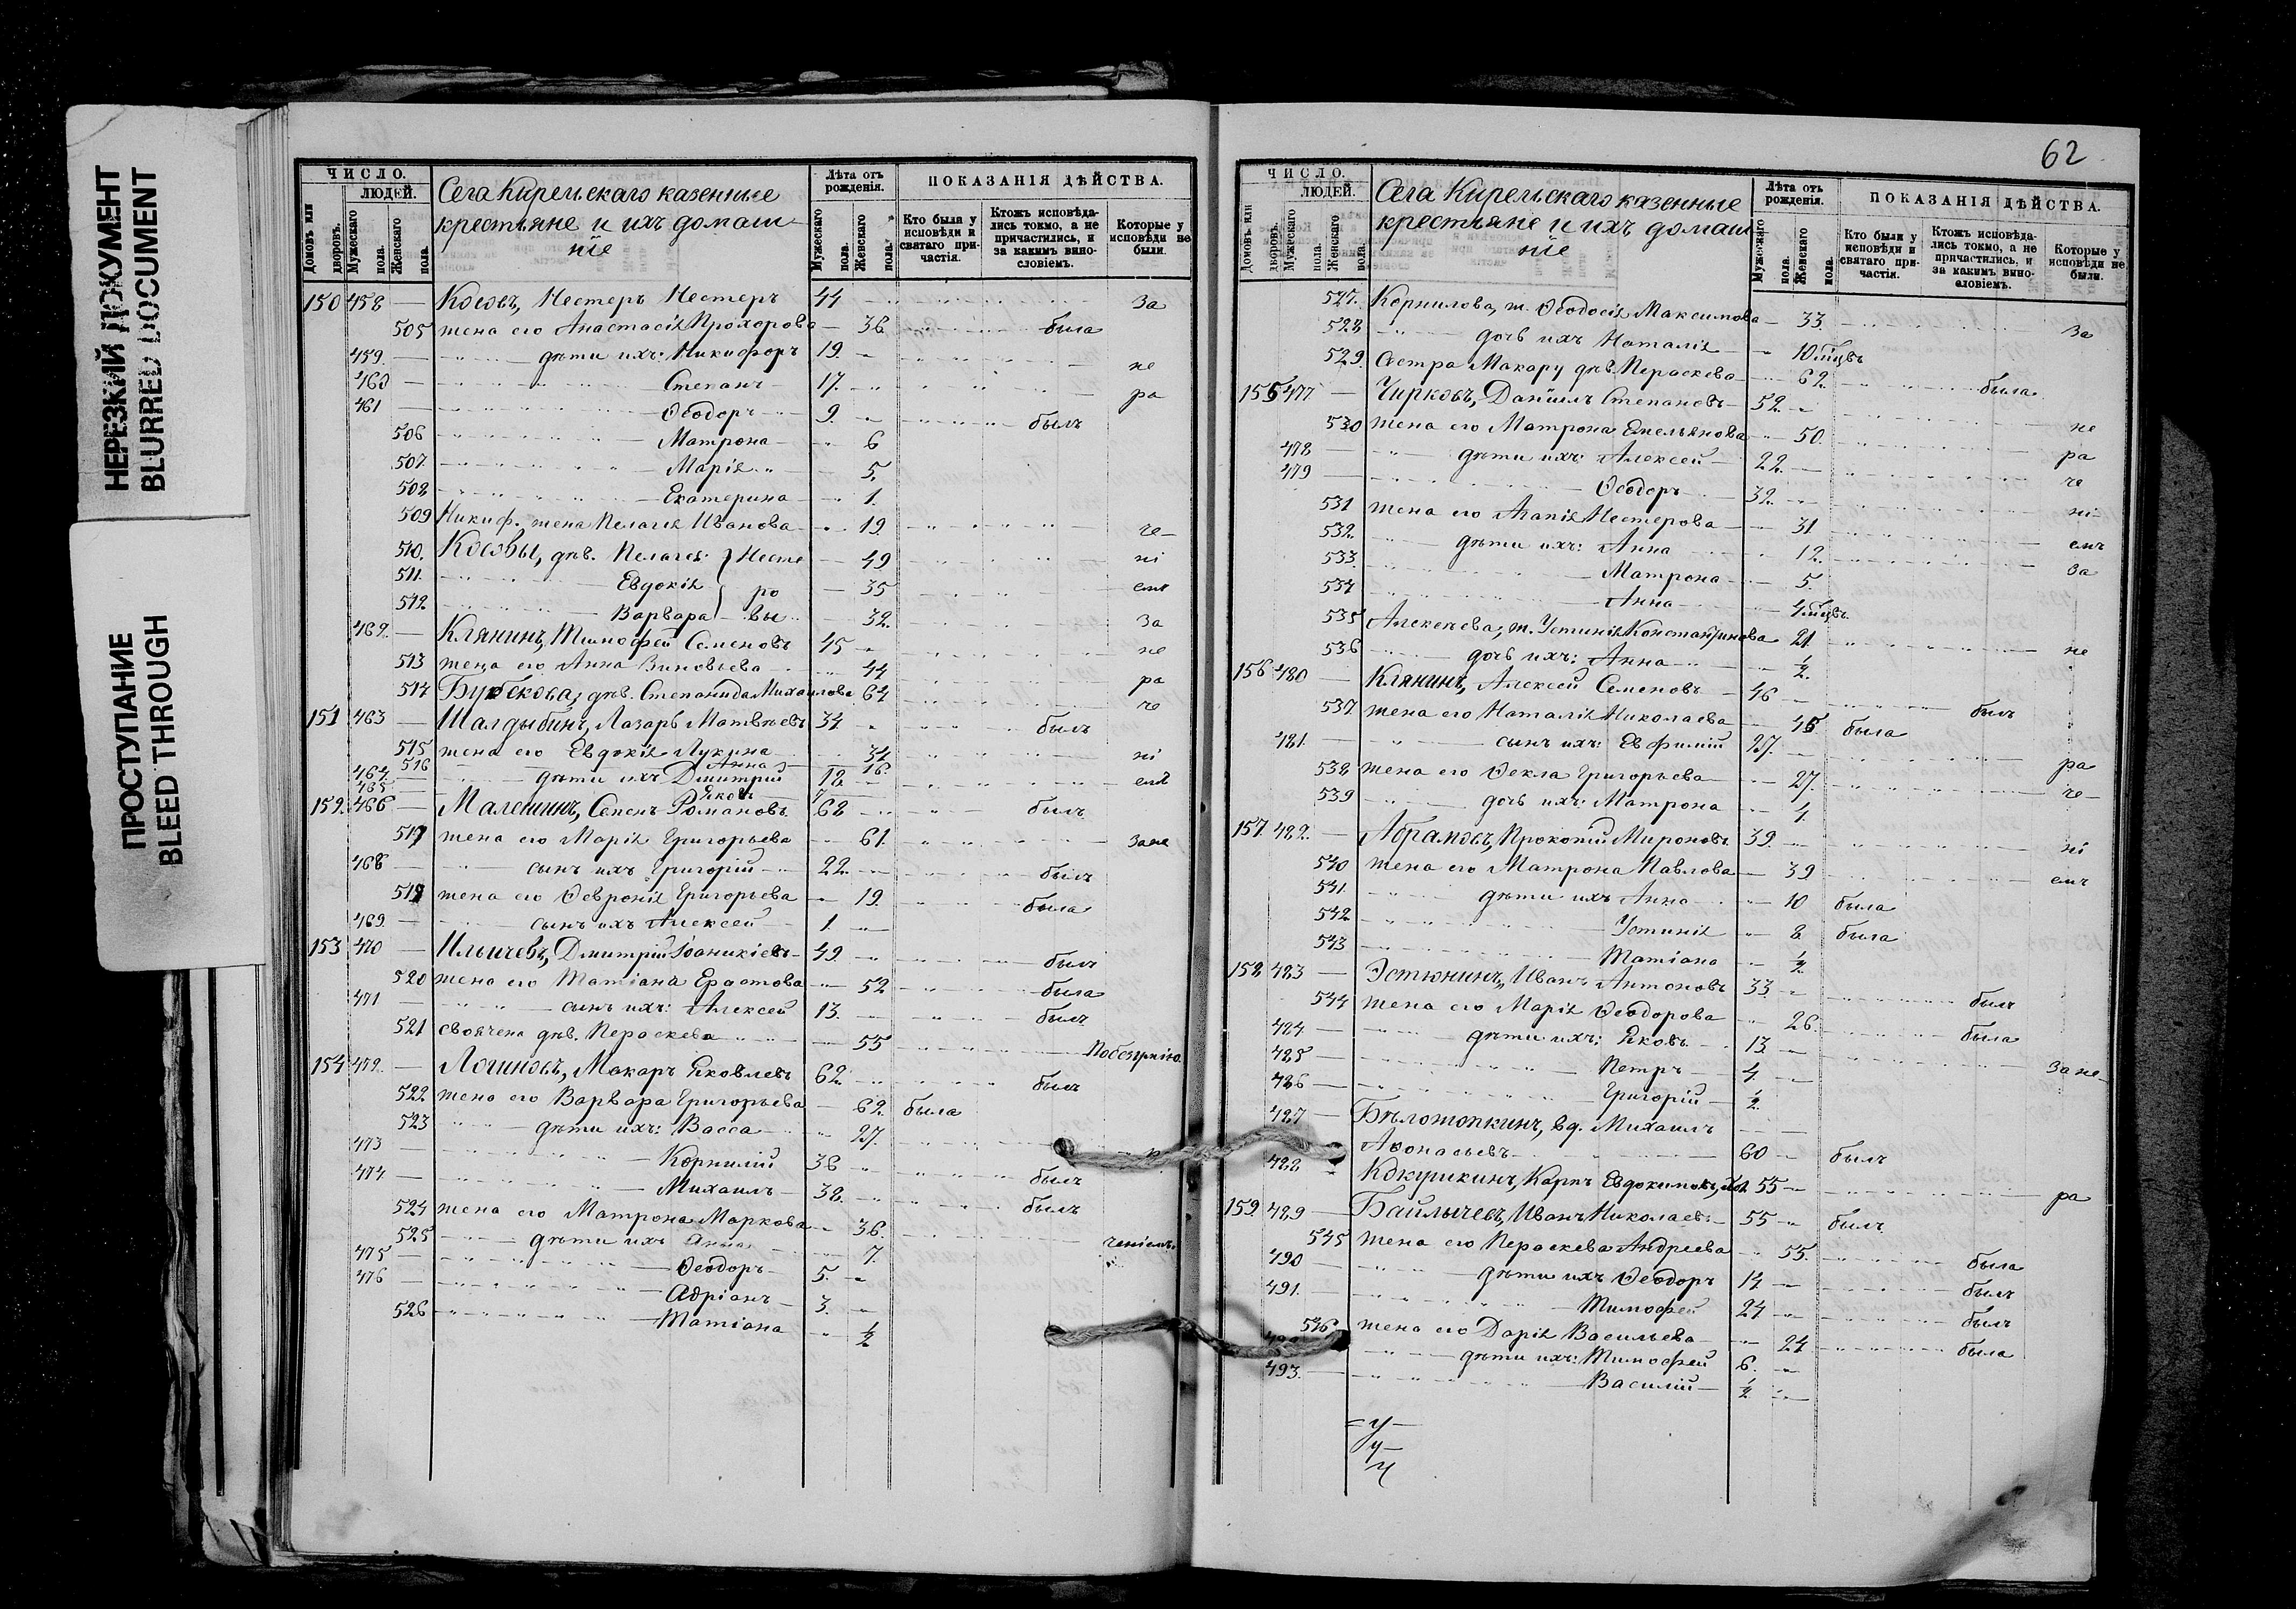 НЕРЕЗКИЙ ДОКУМЕНТ
BLURRED DOCUMENT
ПРОСТУПАНИЕ
BLEED THROUGH
ЧИСЛО.
ЛЮДЕЙ.
Домовъ или дворовъ.
Мужескаго пола.
Женскаго пола.
Села Кирельскаго казенные
крестьяне и ихъ домаш-
ніе
Лѣта отъ рожденія.
Мужескаго пола.
Женскаго пола.
ПОКАЗАНІЯ ДѢЙСТВА.
Кто были у исповѣди и святаго причастія.
Ктожъ исповѣдались токмо, а не причастились, и за какимъ винословіемъ.
Которые у исповѣди не были.
150 458 Косовъ, Нестеръ Нестеръ 44 За
505 жена его Анастасія Прохорова 36 была
459 дѣти ихъ: Никифоръ 19 не
460 Степанъ 17 ра
461 Ѳеодоръ 9 былъ
506 Матрона 6
507 Марія 5
508 Екатерина 1
509 Никиф. жена Пелагея Иванова 19 че-
510 Косовы, дѣв. Пелагея } Несте 49 ні
511 Евдокія ро 35 емъ
512 Варвара вы 32 За
462 Клянинъ, Тимофей Семеновъ 45 не
513 жена его Анна Зиновьева 44 ра
514 дѣв. Степанида Михайлова 64 че
151 463 Шалдыбинъ, Лазарь Матвѣевъ 34 былъ
515 жена его Евдокія Лукина 34 ні
516 Анна 16
464 дѣти ихъ Дмитрій 12 емъ
465 Яковъ
152 466 Малешинъ, Семенъ Романовъ 62 былъ
517 жена его Марія Григорьева 61 Зане
468 сынъ ихъ Григорій 22 былъ
519 жена его Ѳевронія Григорьева 19 была
469 сынъ ихъ Алексей 1
153 470 Ильичевъ, Дмитрій Іоаникіевъ 49 былъ
520 жена его Татіана Ерастова 52 была
471 сынъ ихъ: Алексей 13 былъ
521 своячена дѣв. Пераскева 55
154 472 Логиновъ, Макаръ Яковлевъ 62 былъ
522 жена его Варвара Григорьева 62 была
523 дѣти ихъ: Васса 27
473 Корнилій 36 былъ
474 Михаилъ 38 былъ
524 жена его Матрона Маркова 36 ченіемъ
525 дѣти ихъ Анна 7
475 Ѳеодоръ 5
476 Адріанъ 3
526 Татіана ½
62
ЧИСЛО.
ЛЮДЕЙ.
Домовъ или дворовъ.
Мужескаго пола.
Женскаго пола.
Села Кирельскаго казенные
крестьяне и ихъ домаш
ніе
Лѣта отъ рожденія.
Мужескаго пола.
Женскаго пола.
ПОКАЗАНІЯ ДѢЙСТВА.
Кто были у исповѣди и святаго причастія.
Ктожъ исповѣдались токмо, а не причастились, и за какимъ винословіемъ.
Которые у исповѣди не были.
527 Корнилова, ж. Ѳеодосія Максимова 33 За
528 дочь ихъ Наталія 10 мцвъ
529 Сестра Макару дѣв. Пераскева 62 была
155 477 Чирковъ, Даніилъ Степановъ 52 не
530 жена его Матрона Емельянова 50 ра
478 дѣти ихъ: Алексей 22 че
479 Ѳеодоръ 32 ні-
531 жена его Агапія Нестерова 31 емъ
532 дѣти ихъ: Анна 12 За
533 Матрона 5
534 Анна 4 мцвъ
535 Алексеева, ж. Устинія Константинова 21 не
536 дочь ихъ: Анна ½
156 480 Клянинъ, Алексей Семеновъ 46 былъ
537 жена его Наталія Николаева 45 была
481 сынъ ихъ: Евфимій 27 ра
538 жена его Ѳекла Григорьева 27 че-
539 дочь ихъ: Матрона 1
157 482 Абрамовъ, Прокопій Мироновъ 39 ні
540 жена его Матрона Павлова 39 емъ
531 дѣти ихъ Анна 10 была
542 Устинія 8 была
543 Татіана ½
158 483 Эстюнинъ, Иванъ Антоновъ 33 былъ
544 жена его Марія Ѳеодорова 26 была
484 дѣти ихъ: Яковъ 13 Зане-
485 Петръ 4
486 Григорій ½
487 Бѣлотопкинъ, вд. Михаилъ
Аѳонасьевъ 60 былъ
488 Кокурикинъ, Карпъ Евдокимовъ, 55 ра
159 489 Байлычевъ, Иванъ Николаевъ 55 былъ
545 жена его Пераскева Андреева 55 была
490 дѣти ихъ Ѳеодоръ 14 былъ
491 Тимофей 24 былъ
546 жена его Дарія Васильева 24 была
дѣти ихъ: Тимофей 6
493 Василій ½